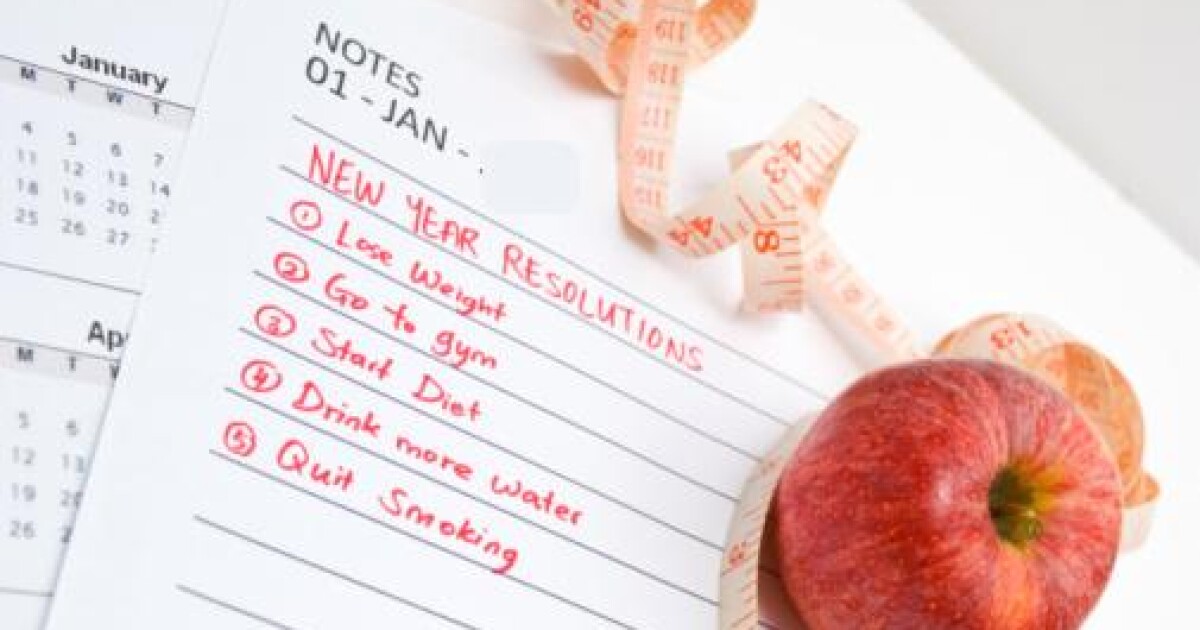 January
M T W T
4 5 6 7
11 12 13 14
18 19 20
25 26 27
Ap
M T
5 6
12 13
19
26
NOTES
01 - JAN - .
NEW YEAR RESOLUTIONS
① Lose Weight
② Go to gym
③ Start Diet
④ Drink more water
⑤ Quit Smoking
119
118
117
116
115
44
43
8
13